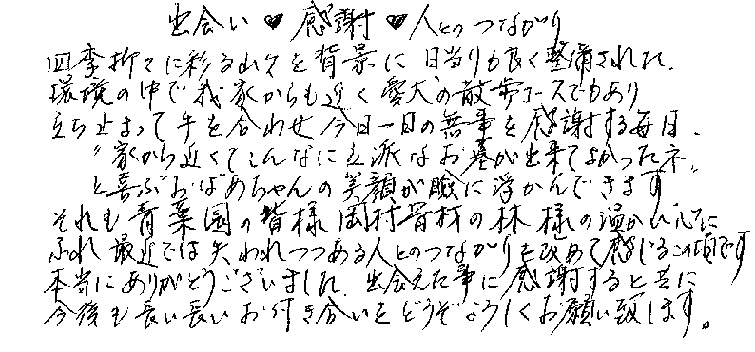 出会い♥感謝♥人とのつながり
四季折々に彩る山々を背景に、日当りも良く整備された、
環境の中で我家からも近く愛犬の散歩コースでもあり
立ち止まって手を合わせ今日一日の無事を感謝する毎日、
〝家から近くてこんなに立派なお墓が出来てよかったネ〟
と喜ぶおばあちゃんの笑顔が瞼に浮かんできます
それも青葉園の皆様 岡村石材の林様の温かい心に
ふれ 最近では失われつつある人とのつながりを改めて感じるこの頃です
本当にありがとうございました。出会えた事に感謝すると共に
今後も長い長いお付き合いをどうぞよろしくお願い致します。